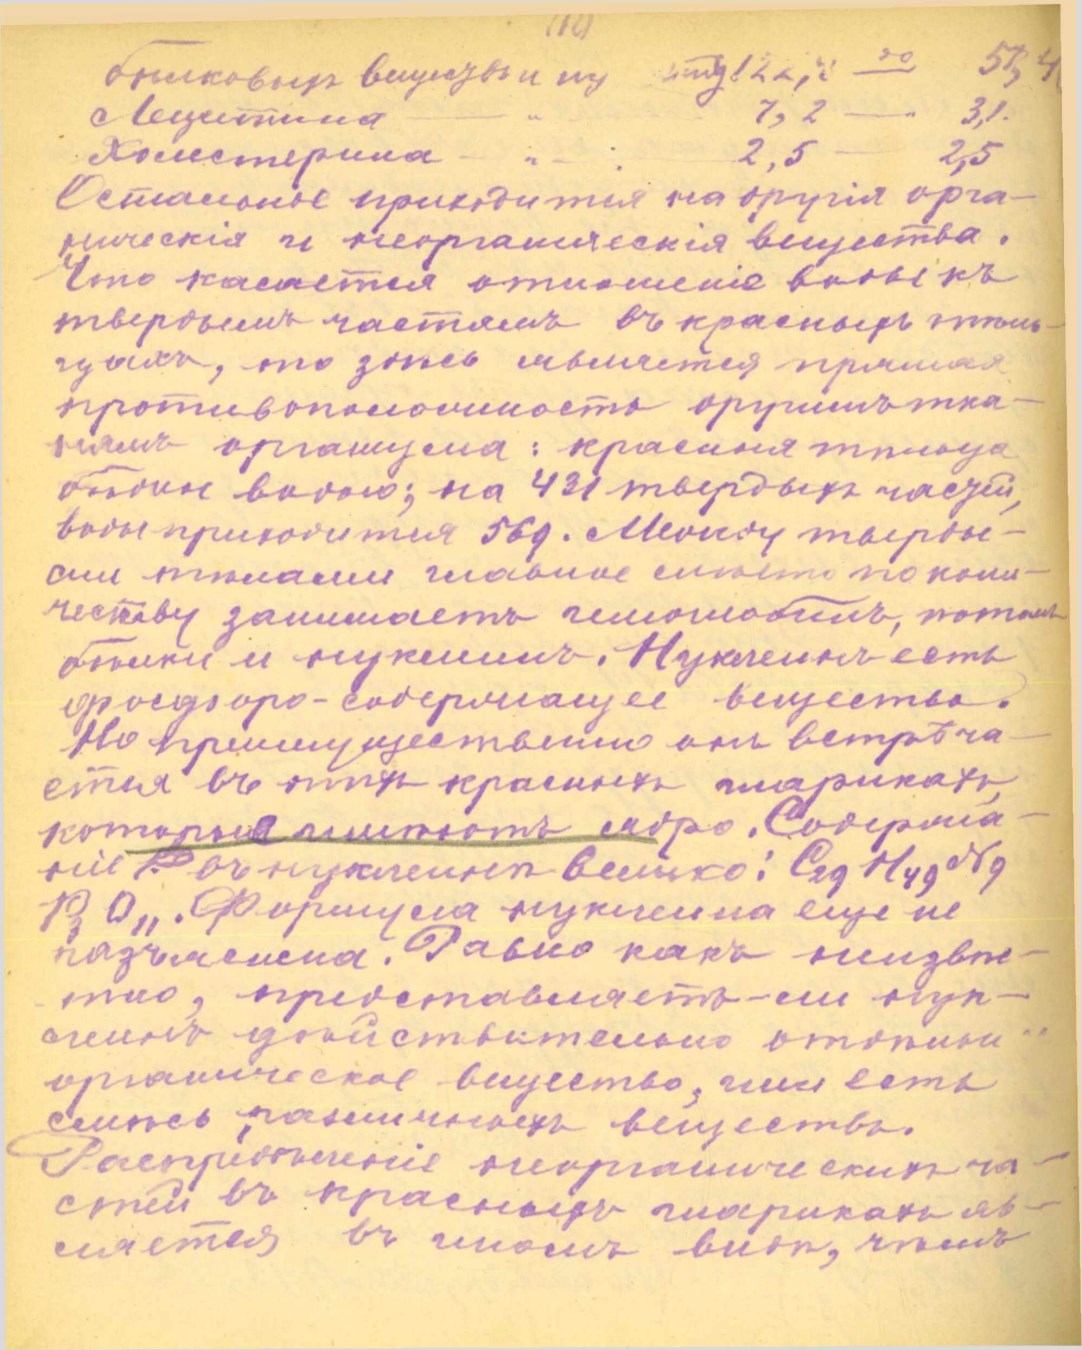 (10)
бѣлковыхъ веществъ и ну 122, до 5
Лецитина — „ 7,2 — 3,1.
Холестерина — „ — 2,5 — 2,5
Остальное приходится на другія орга-
ническія и неорганическія вещества.
Что касается отношенія воды къ
твердымъ частямъ въ красныхъ тѣль-
цахъ, то здѣсь является прямая
противоположность другимъ тка-
нямъ организма: красныя тѣльца
бѣдны водою; на 431 твердыхъ частей,
воды приходится 569. Между тверды-
ми тѣлами главное мѣсто по коли-
честву занимаетъ гемоглобинъ, потомъ
бѣлки и нуклеинъ. Нуклеинъ есть
фосфоро-содержащее вещество.
Но преимущественно онъ встрѣча-
ется въ тѣхъ красныхъ шарикахъ,
которые имѣютъ ядро. Содержа-
ніе P въ нуклеинѣ велико: C29 H49 N9
P3 O11. Формула нуклеина еще не
разъяснена. Равно какъ неизвѣс-
тно, представляетъ-ли нук-
леинъ дѣйствительно отдѣльн
органическое вещество, или есть
смѣсь различныхъ веществъ.
Распредѣленіе неорганическихъ ча-
стей въ красныхъ шарикахъ яв-
ляется въ иномъ видѣ, чѣмъ